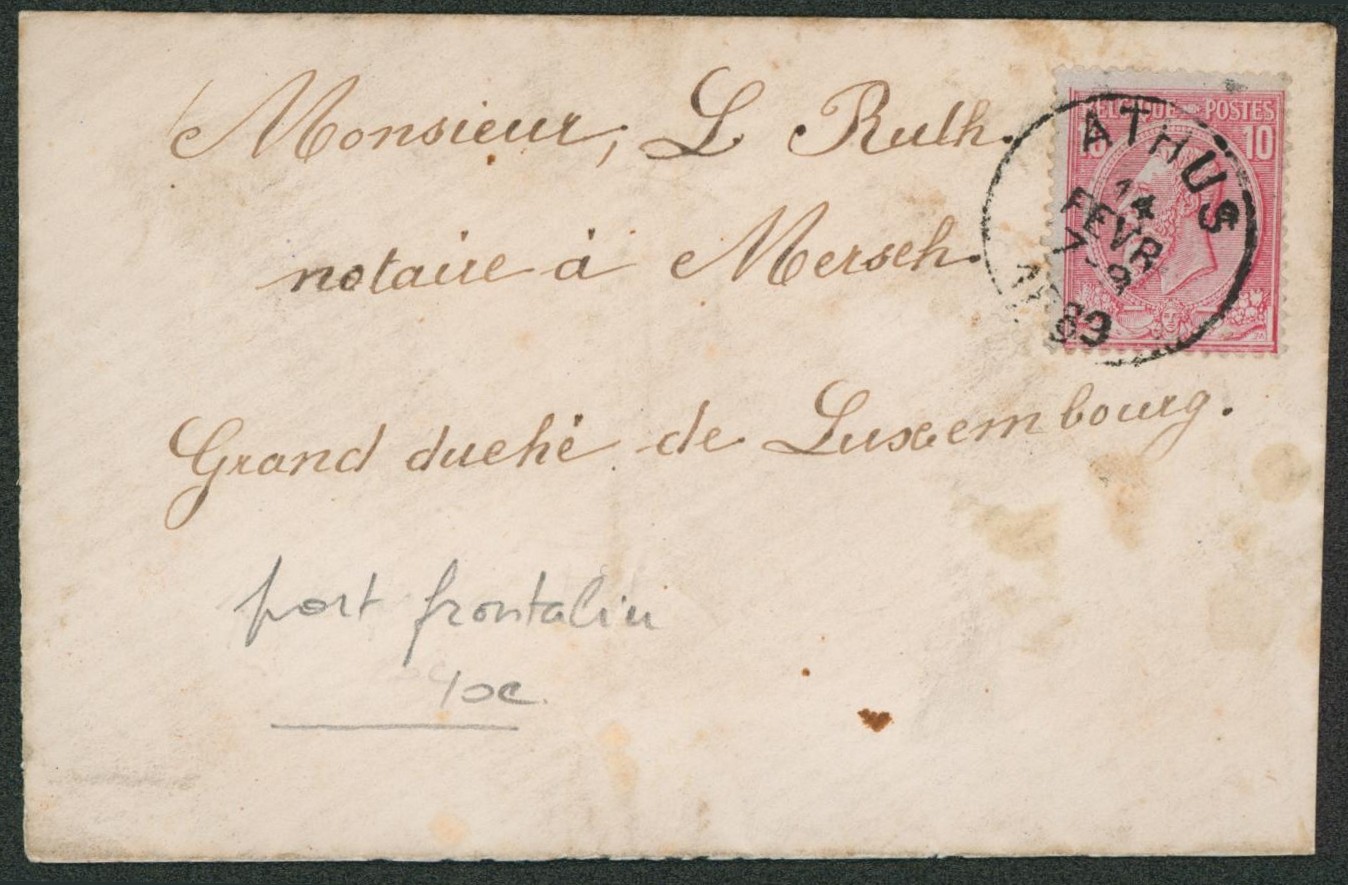 Monsieur, L Ruth.
notaire à Mersch.
Grand duché de Luxembourg.
port frontalier
10c
BELGIQUE POSTES
10 10
ATHUS
14
FEVR
7-8